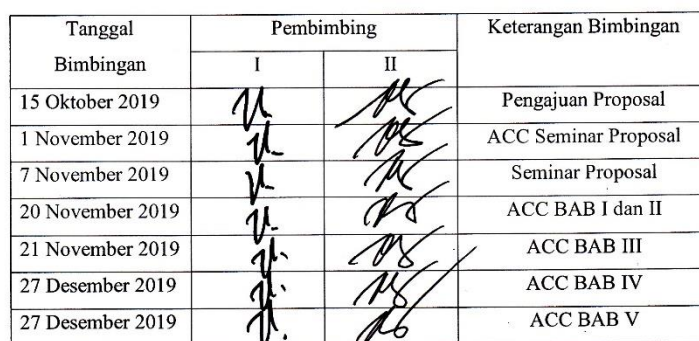 Tanggal Bimbingan Pembimbing Keterangan Bimbingan
I II
15 Oktober 2019 Pengajuan Proposal
1 November 2019 ACC Seminar Proposal
7 November 2019 Seminar Proposal
20 November 2019 ACC BAB I dan II
21 November 2019 ACC BAB III
27 Desember 2019 ACC BAB IV
27 Desember 2019 ACC BAB V